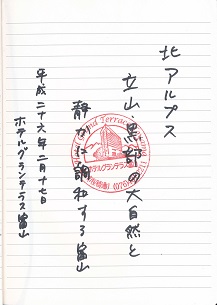 北アルプス
立山・黒部の大自然と
静かに調和する富山
平成二十六年二月十七日
ホテルグランテラス富山
Grand Terrace
ホテルグランテラス富山